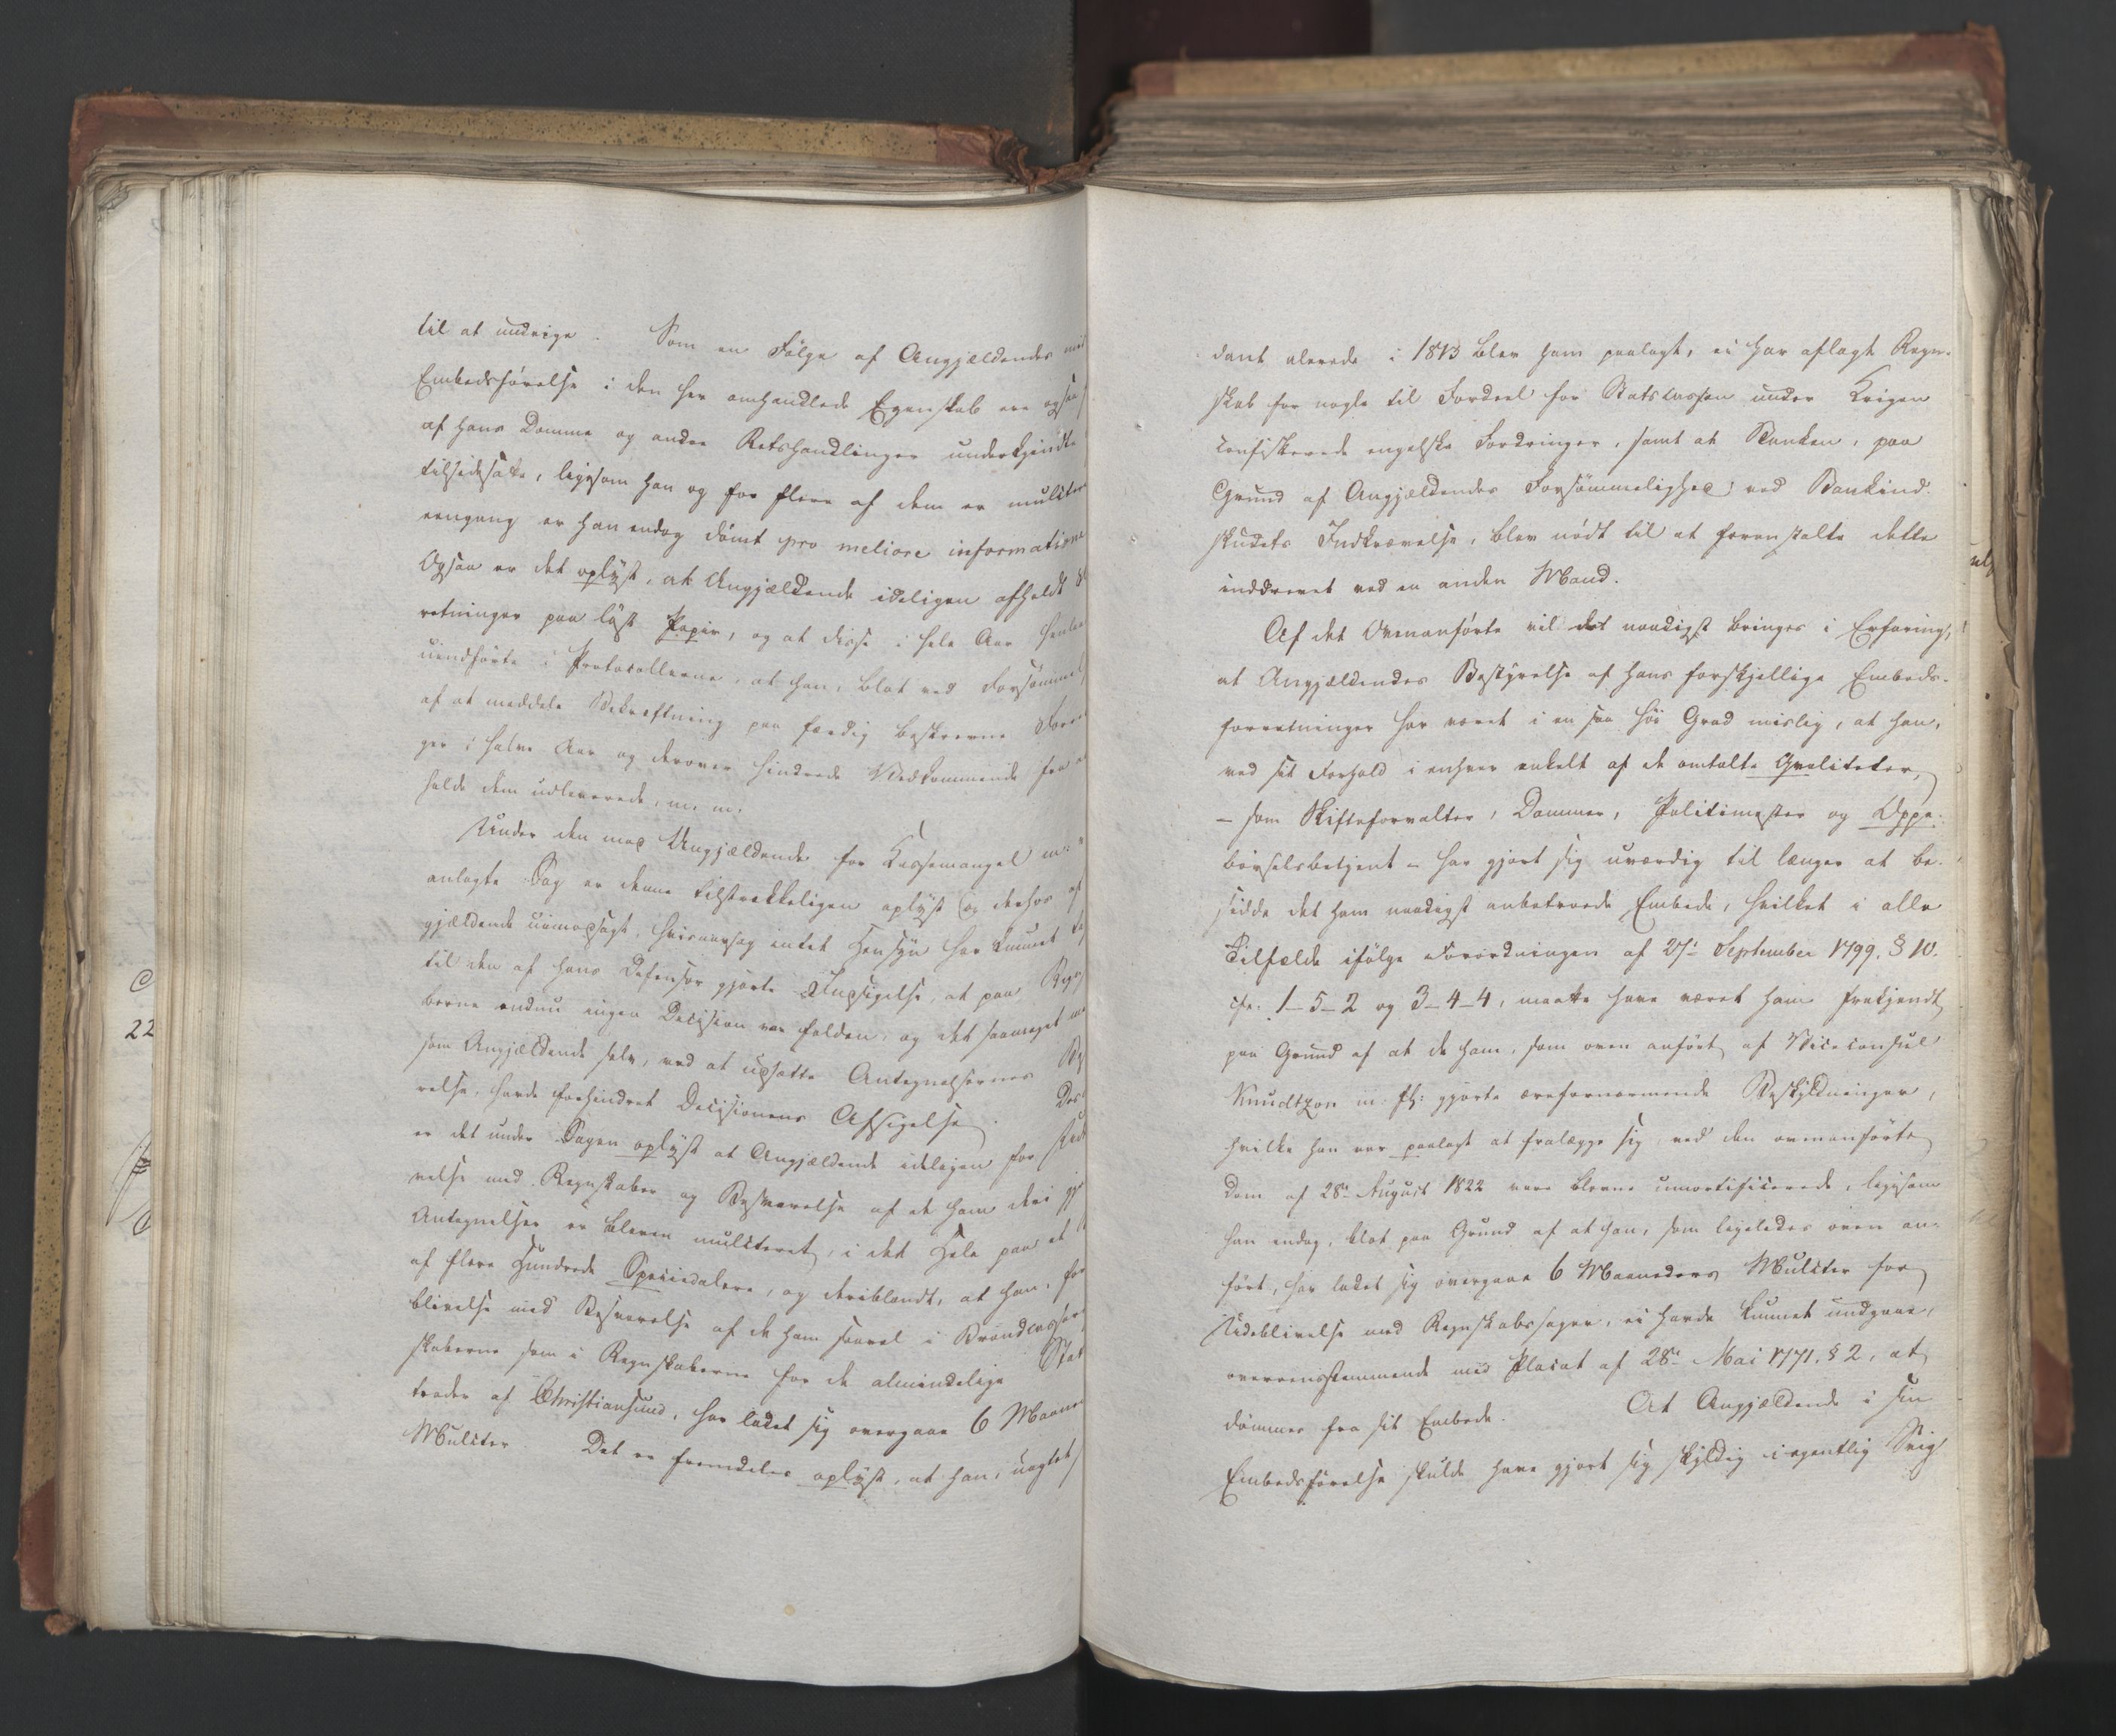 til at undvige. Som en Følge af Angjældendes
Embedsførelse i den her omhandlede Egenskab ere ogsaa
af hans Domme og andre Retshandlinger underkjendte
tilsidesatte, ligesom han og for flere af dem er mulcteret
eengang er han endog dömt pro meliore informatione
Ogsaa er det oplyst, at Angjældende ideligen afholdt
retninger paa löst Papir, og at disse i hele Aar
uindførte i Protocollerne, at han, blot ved
af at meddele Bekræftning paa færdig beskrevne
ger i halve Aar og derover hindrede Vedkommende fra
holde dem udleverede, m. m.
Under den mod Angjældende for Kassemangel m:
anlagte Sag er denne tilstrækkeligen oplyst og derhos
gjældende uimodsagt, hvisaarsag intet Hensyn har kunnet
til den af hans Defensor gjorte Indsigelse, at paa
berne endnu ingen Decision var falden, og det saameget
som Angjældende selv, ved at udsætte Antegnelsernes
relse, havde forhindret Decisionens Afsigelse.
er det under Sagen oplyst at Angjældende ideligen for
velse med Regnskaber og Besvarelse af de ham
Antegnelser er bleven mulcteret, i det Hele paa et
af flere Hundrede Speciedalere, og deriblandt, at han, for
blivelse med Besvarelse af de ham saavel i
skaberne som i Regnskaberne for de almindelige
træder af Christiansund, har ladet sig overgaae 6
Mulcter. Det er fremdeles oplyst, at han, uagtet
dant allerede i 1813 blev ham paalagt, ei har aflagt Regn-
skab for nogle til Fordeel for Statscassen under Krigen
confiskerede engelske Fordringer, samt at Banken, paa
Grund af Angjældendes Forsömmelighed ved Bankind-
skudets Indkrævelse, blev nödt til at foranstalte dette
inddrevet ved en anden Mand.
Af det Ovenanförte vil det naadigst bringes i Erfaring,
at Angjældendes Bestyrelse af hans forskjellige Embeds-
forretninger har været i en saa höi Grad mislig, at han,
ved sit Forhold i enhver enkelt af de omtalte Qvaliteter,
– som Skifteforvalter, Dommer, Politimester og Oppe-
börselsbetjent – har gjort sig uværdig til længer at be-
sidde det ham naadigst anbetroede Embede, hvilket i alle
Tilfælde ifölge Forordningen af 27de September 1799, § 10.
cfr. 1–5–2 og 3–4–4, maatte have været ham frakjendt
paa Grund af at de ham, som oven anfört, af Viceconsul
Knudtzon m: fl: gjorte ærefornærmende Beskyldninger,
hvilke han var paalagt at fralægge sig ved den ovenanförte
Dom af 28de August 1822 vare blevne umortificerede, ligesom
han endog, blot paa Grund af at han, som ligeledes oven an-
fört, har ladet sig overgaae 6 Maaneders Mulcter for
Udeblivelse med Regnskabssager, ei havde kunnet undgaae,
overeensstemmende med Placat af 28de Mai 1771, § 2, at
dömmes fra sit Embede. At Angjældende i sin
Embedsförelse skulde have gjort sig skyldig i egentlig Svig
22